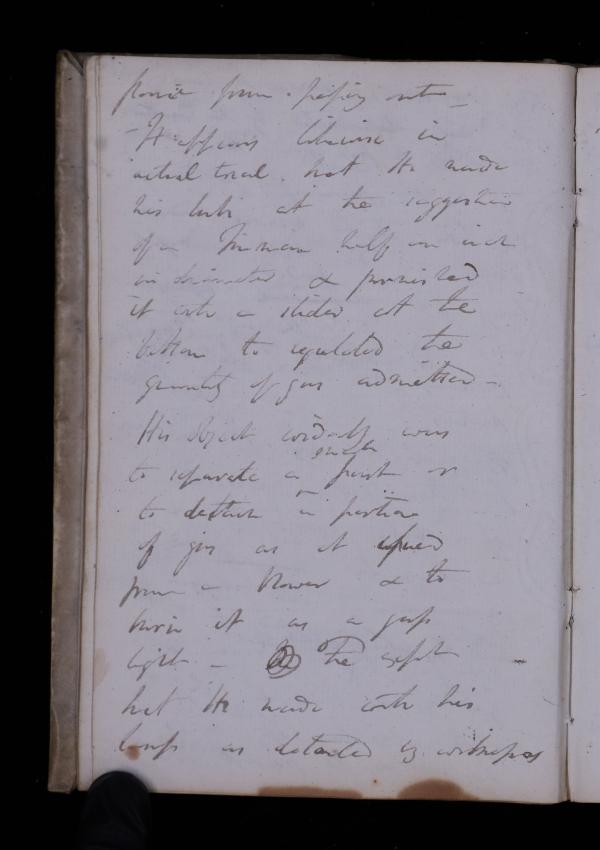 flame from passing out _
- It appears likewise in
actual trial that He made
his tube at the suggestion
of a Tinman half an inch
in diameter & furnished
it with a slider at the
bottom to regulate the
quantity of gas admitted -
His object evidently was
to separate a small part or
to detach a portion
of gas as it issued
from a blower & to
burn it as a gas
light - The
that He made with his
lamp as detailed by witnesses